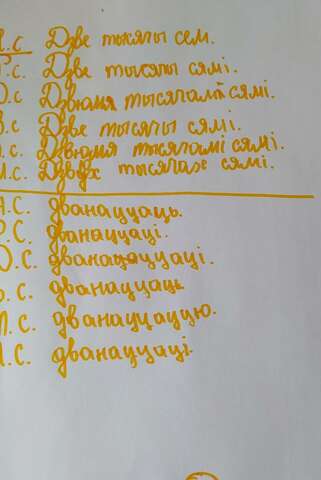 Н.с Дзве тысячы сем.
Р.с. Дзве тысячы сямі.
Д.с Дзвюмя тысячам сямі.
В.с Дзве тысячы сямі.
Т.с. Дзвюмя тысячамі сямі.
М.с. Дзвух тысячах сямі.
Н.С. дванаццаць.
Р.С. дванаццаці.
Д.С. дванаццаццаці.
В.с. дванаццаць
Т.с. дванаццаццю.
М.с. дванаццаці.